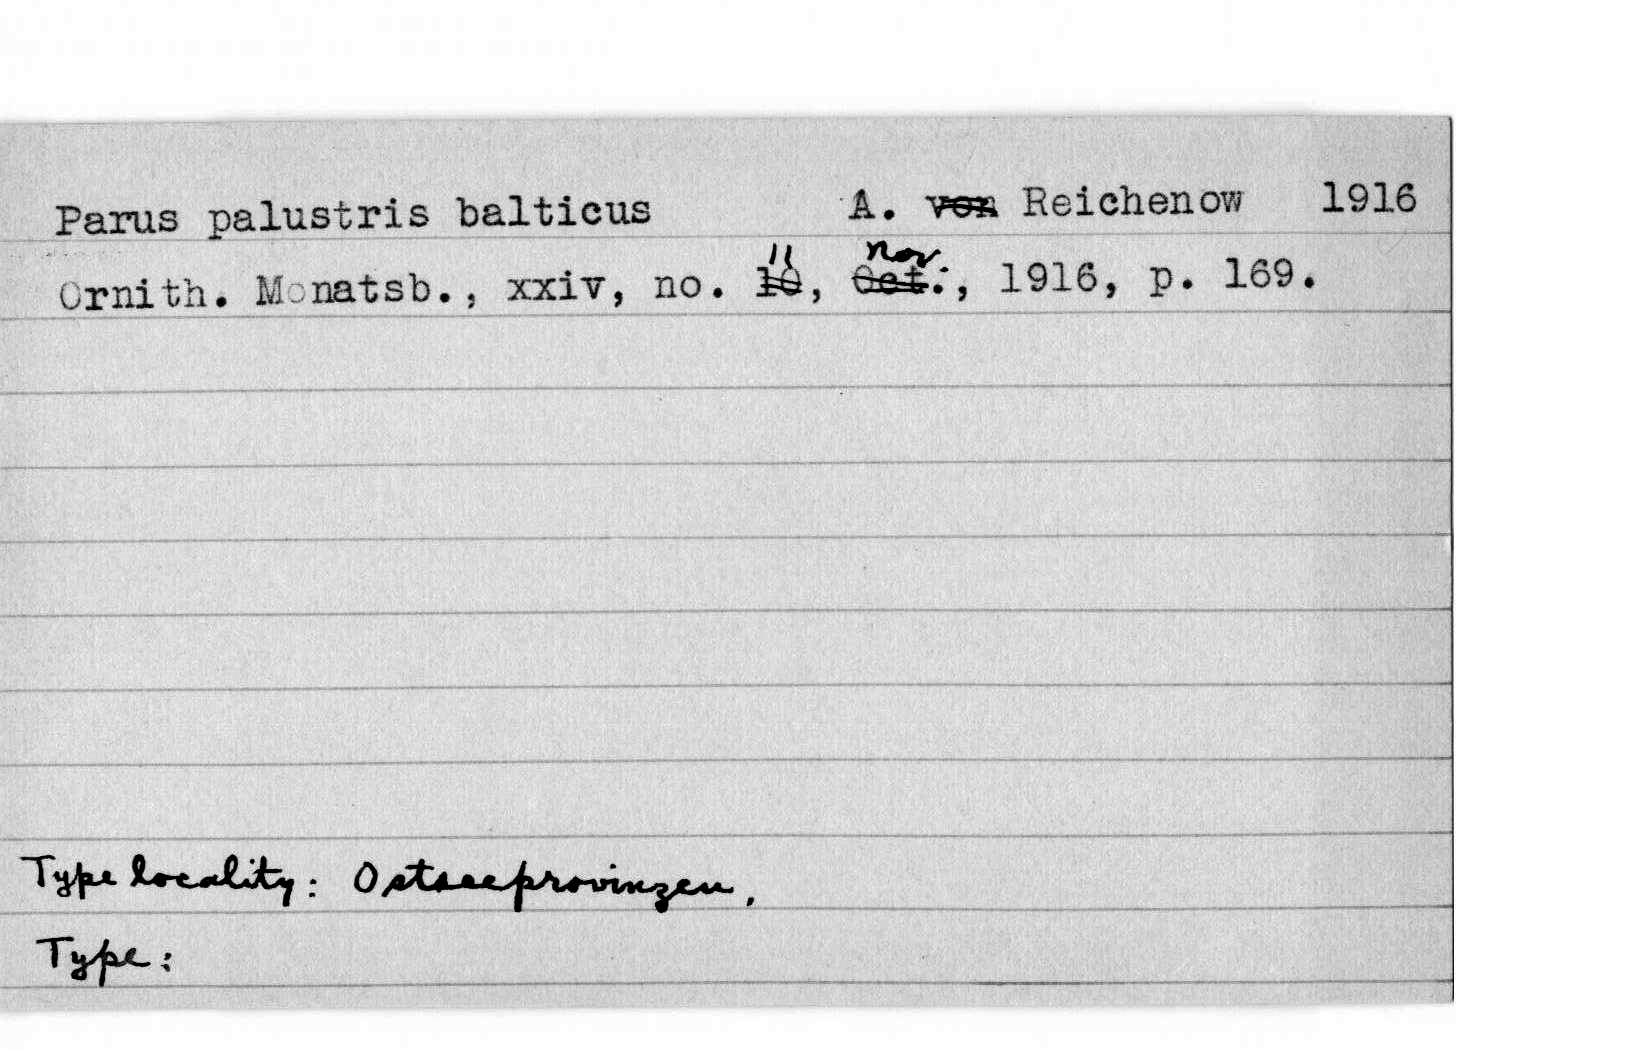 Parus palustris balticus A. von Reichenow 1916
11 Nov
Ornith. Monatsb., xxiv, no. 10, Oct., 1916, p. 169.
Type locality: Ostseeprovinzen,
Type: